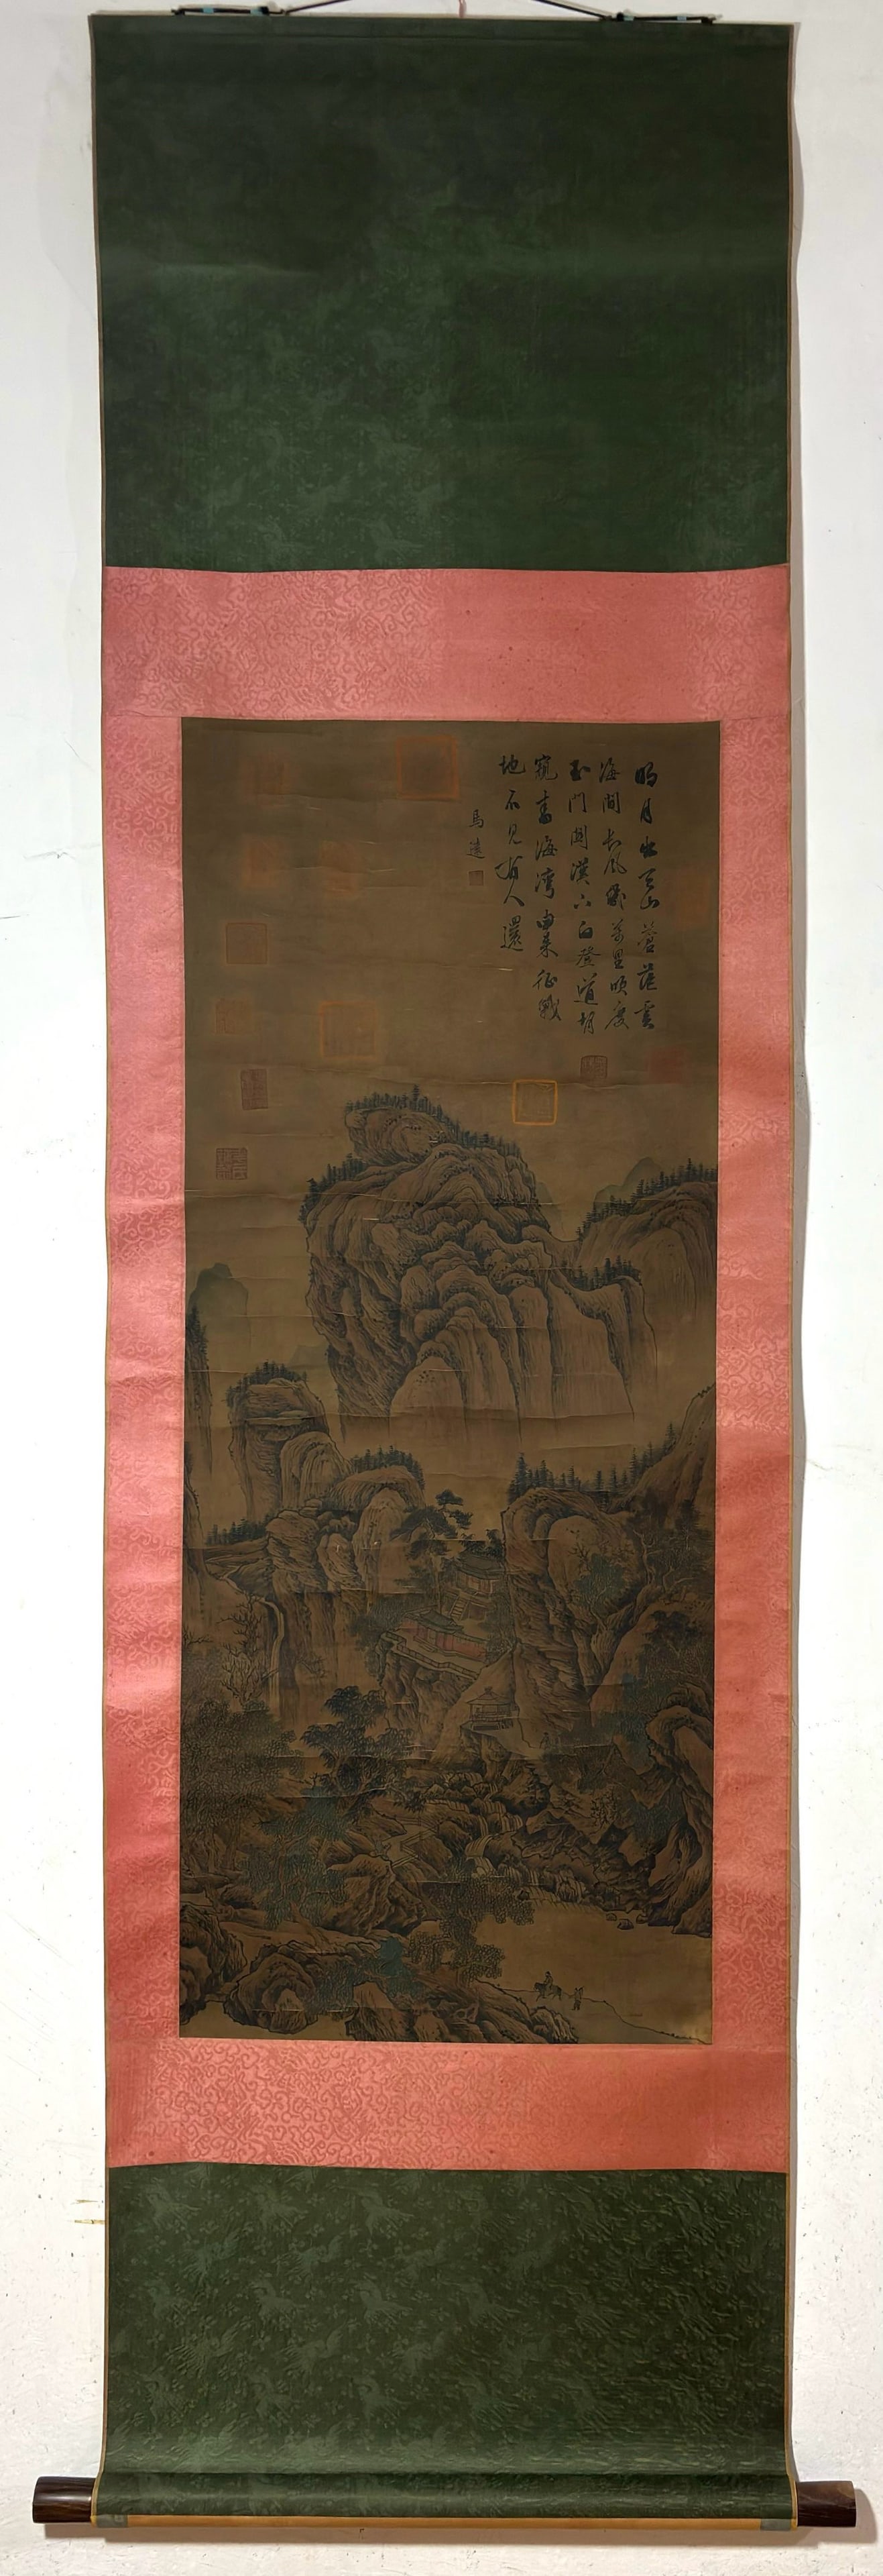 明月出天山蒼茫雲
海間長風幾萬里吹度
玉門關漢下白登道胡
窺青海灣由來征戰
地不見有人還
馬遠